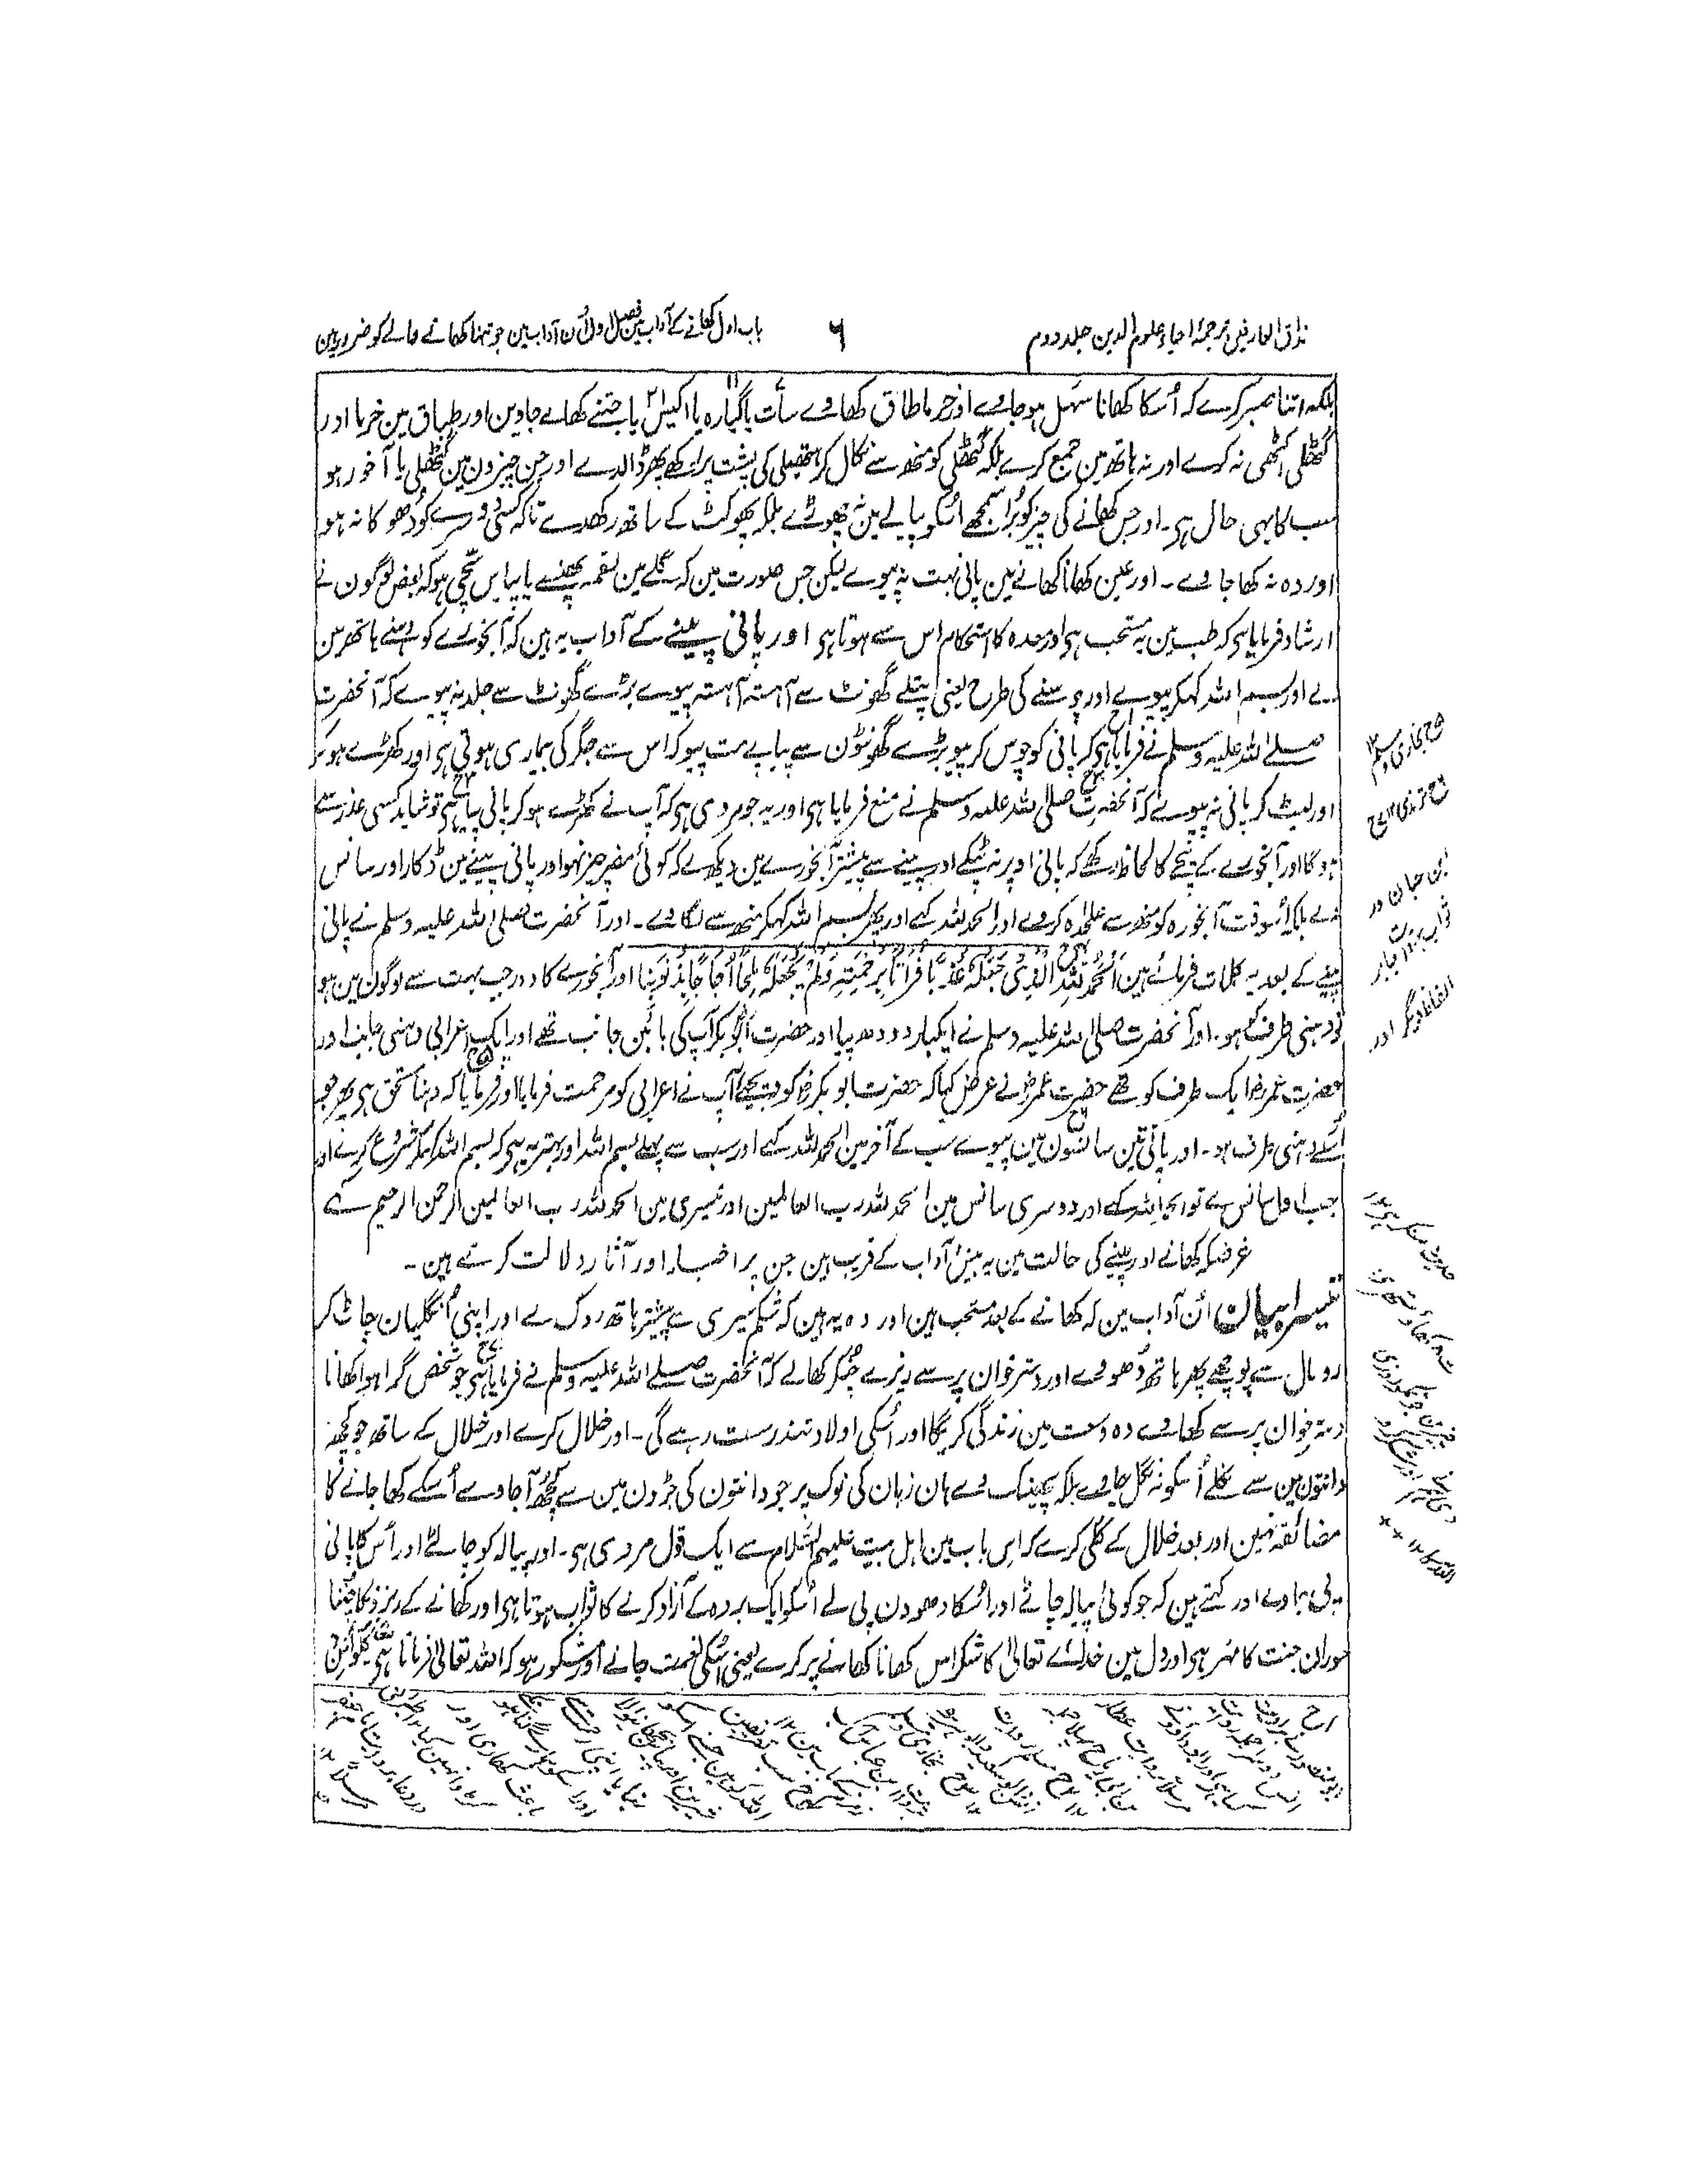 مذاق العارفین ترجمۂ احیاء علوم الدین جلد دوم
۶
باب اول کھانے کے آداب مین فصل اول اُن آداب مین جو تنہا کھانے والے کو ضرور ہین
بلکہ اتنا صبر کرے کہ اُسکا کھانا سہل ہو جاوے اور خرما طاق کھاوے سات یا گیارہ یا اکیس یا جتنے کھائے جاوین اور طباق مین خرما اور
گٹھلی اکٹھی نہ کرے اور نہ ہاتھ مین جمع کرے بلکہ گٹھلی کو منھ سے نکال کر ہتھیلی کی پشت پر رکھے پھر ڈالدے اور جن چیزون مین گٹھلی یا آخور ہو
سب کا یہی حال ہی۔ اور جس کھانے کی چیز کو بُرا سمجھے اُسکو پیالے مین نہ چھوڑے بلکہ پھوکٹ کے ساتھ رکھدے تاکہ کسی دوسرے کو دُھوکا نہ ہو
اور وہ نہ کھا جاوے ۔ اور عین کھانا کھانے مین پانی بہت نہ پیوے لیکن جس صورت مین کہ گلے مین لقمہ پھنسے یا پیاس سچی ہو کہ بعض لوگون نے
ارشاد فرمایا ہی کہ طب مین یہ مستحب ہی اور معدہ کا استحکام اس سے ہوتا ہی اور پانی پینے کے آداب یہ ہین کہ آبخورے کو دہنے ہاتھ مین
لے اور بسم اللہ کہکر پیوے اور چوسنے کی طرح یعنی پتلے گھونٹ سے آہستہ آہستہ پیوے بڑے گھونٹ سے جلد نہ پیوے کہ آنحضرت
صلے اللہ علیہ وسلم نے فرمایا ہی کہ پانی کو چوس کر پیو بڑے گھونٹون سے پیاپے مت پیو کہ اس سے جگر کی بیماری ہوتی ہی اور کھڑے ہو کر
اور لیٹ کر پانی نہ پیوے کہ آنحضرت صلی اللہ علیہ وسلم نے منع فرمایا ہی اور یہ جو مروی ہی کہ آپ نے کھڑے ہو کر پانی پیا ہی تو شاید کسی عذر سے
ہوگا اور آبخورے کے نیچے کا لحاظ رکھے کہ پانی اوپر نہ ٹپکے اور پینے سے پیشتر آبخورے مین دیکھ لے کہ کوئی مضر چیز نہو اور پانی پینے مین ڈکار اور سانس
نہ لے بلکہ اُسوقت آبخورہ کو منھ سے علٰحدہ کردے اور الحمد للہ کہے اور پھر بسم اللہ کہکر منھ سے لگاوے ۔ اور آنحضرت صلی اللہ علیہ وسلم نے پانی
پینے کے بعد یہ کلمات فرمائے ہین اَلْحَمْدُ لِلّٰہِ الَّذِیْ جَعَلَہٗ عَذْبًا فُرَاتًا بِرَحْمَتِہٖ وَلَمْ یَجْعَلْہُ مِلْحًا اُجَاجًا بِذُنُوْبِنَا اور آبخورے کا دور جب بہت سے لوگون مین ہو
تو دہنی طرف کو ہو۔ اور آنحضرت صلی اللہ علیہ وسلم نے ایکبار دودھ پیا اور حضرت ابو بکر آپ کی بائین جانب تھے اور ایک اعرابی دہنی جانب اور
حضرت عمر ایک طرف کو تھے حضرت عمر نے عرض کیا کہ حضرت ابو بکر کو دیجیے آپ نے اعرابی کو مرحمت فرمایا اور فرمایا کہ دہنا مستحق ہی پھر جو
اُسکے دہنی طرف ہو ۔ اور پانی تین سانسون مین پیوے سب کے آخر مین الحمد للہ کہے اور سب سے پہلے بسم اللہ اور بہتر یہ ہی کہ بسم اللہ کہکر شروع کرے اور
جب اول سانس لے تو الحمد للہ کہے اور دوسری سانس مین الحمد للہ رب العالمین اور تیسری مین الحمد للہ رب العالمین الرحمن الرحیم کہے
غرضکہ کھانے اور پینے کی حالت مین یہ بیس آداب کے قریب ہین جن پر اخبار اور آثار دلالت کرتے ہین ۔
تیسرا بیان اُن آداب مین کہ کھانے کے بعد مستحب ہین اور وہ یہ ہین کہ شکم سیری سے پیشتر ہاتھ روک لے اور اپنی اُنگلیان چاٹ کر
رومال سے پونچھے پھر ہاتھ دُھووے اور دسترخوان پر سے ریزے چُنکر کھالے کہ آنحضرت صلے اللہ علیہ وسلم نے فرمایا ہی جو شخص گرا ہوا کھانا
دسترخوان پر سے کھاوے وہ وسعت مین زندگی کریگا اور اُسکی اولاد تندرست رہے گی ۔ اور خلال کرے اور خلال کے ساتھ جو کچھ
دانتون مین سے نکلے اُسکو نہ نگل جاوے بلکہ پھینک دے ہان زبان کی نوک پر جو دانتون کی جڑون مین سے کچھ آجاوے اُسکے کھا جانے کا
مضائقہ نہین اور بعد خلال کے کلی کرے کہ اس باب مین اہل بیت علیہم السلام سے ایک قول مروی ہی۔ اور پیالہ کو چاٹے اور اُس کا پانی
پی جاوے اور کہتے ہین کہ جو کوئی پیالہ چاٹے اور اُسکا دھوون پی لے اُسکو ایک بردہ کے آزاد کرنے کا ثواب ہوتا ہی اور کھانے کے ریزونکا چُننا
حوران جنت کا مہر ہی اور دل مین خداے تعالیٰ کا شکر اس کھانا کھانے پر کرے یعنی اُسکی نعمت جانے اور مشکور ہو کہ اللہ تعالیٰ فرماتا ہی کُلُوْا مِنْ